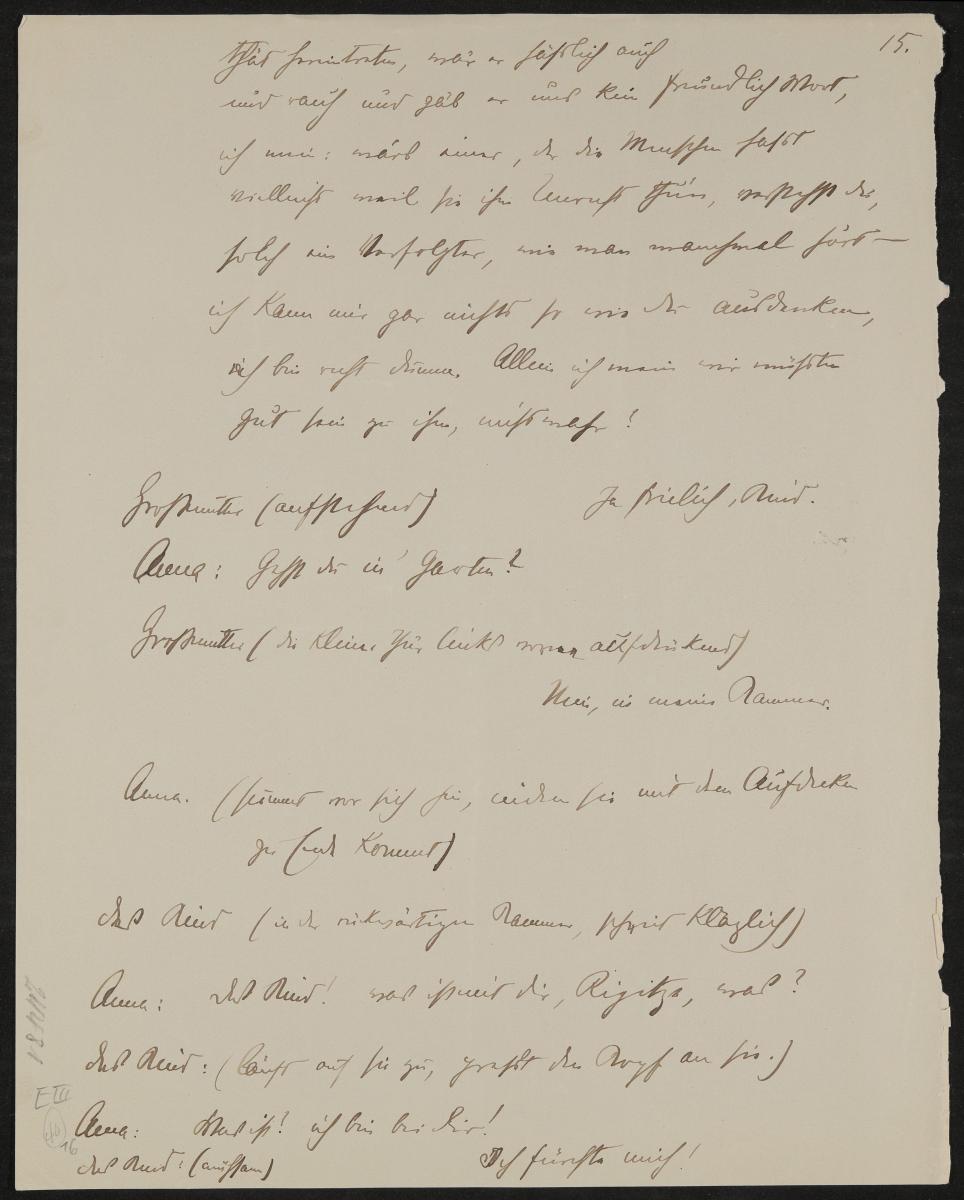 15.
thät hereintreten, wär er häßlich auch
und rauh und gäb er uns kein freundlich Wort,
ich mein: wärs einer, der die Menschen haßt
vielleicht weil sie ihm Unrecht thun, verstehst du,
solch ein Verfolgter, wie man manchmal hört —
ich kann mir gar nichts so wie der ausdenken,
ich bin recht dumm. Allein ich mein wir müßten
gut sein zu ihm, nicht wahr!
Großmutter (aufstehend) Ja freilich, Kind.
Anna: Gehst du in' Garten?
Großmutter (die kleine Thür links vorne aufdrückend)
Nein, in meine Kammer.
Anna. (summt vor sich hin, indem sie mit dem Aufdecken
zu Ende kommt)
das Kind (in der rückwärtigen Kammer, schreit kläglich)
Anna: das Kind! was ist mit dir, was?
das Kind: (läuft auf sie zu, den Kopf an sie.)
Anna: Was ist? ich bin bei dir!
das Kind: Ich fürchte mich!
E III
16